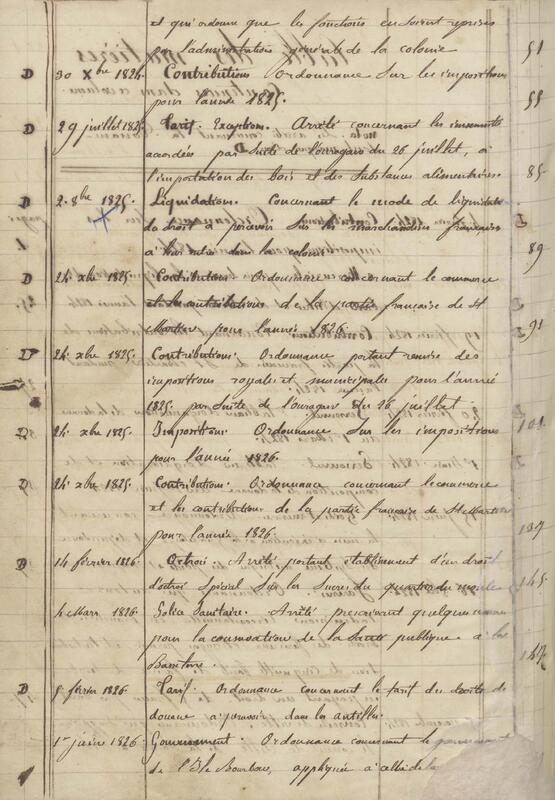 et qui ordonne que les fonctions en soient reprises
par l'administration générale de la colonie 51
D 30 Xbre 1824. Contributions Ordonnance sur les impositions
pour l'année 1825. 55
D 29 juillet 1825. Tarif. Exceptions. Arrêté concernant les
accordées par suite de l'ouragan du 26 juillet, à
l'importation des bois et des substances alimentaires. 85
D 2. 8bre 1825. Liquidations. Concernant le mode de liquidation
de droit à percevoir sur les marchandises françaises
à leur entrée dans la colonie 89
D 24 xbre 1825. Contributions Ordonnance concernant le commerce
et les contributions de la partie française de St
Martin pour l'année 1826. 91
D 24 xbre 1825. Contributions. Ordonnance portant remise des
impositions royales et municipales pour l'année
1825, par suite de l'ouragan du 26 juillet.
D 24 xbre 1825. Impositions. Ordonnance sur les impositions 101
pour l'année 1826.
D 24 xbre 1825. Contributions. Ordonnance concernant le commerce
et les contributions de la partie française de St Martin
pour l'année 1826. 137
D 14 février 1826. Octroi. Arrêté portant établissement d'un droit
d'octroi spécial sur les sucres du quartier du moule 145
4 Mars 1826. Police Sanitaire. Arrêté prescrivant quelques
pour la conservation de la santé publique à la
Basseterre. 147
D 8 février 1826. Tarif. Ordonnance concernant le tarif des droits de
douane à percevoir dans les antilles.
1er juin 1826. Gouvernement. Ordonnance concernant le gouvernement
de l'Ile Bourbon, appliquée à celle de la